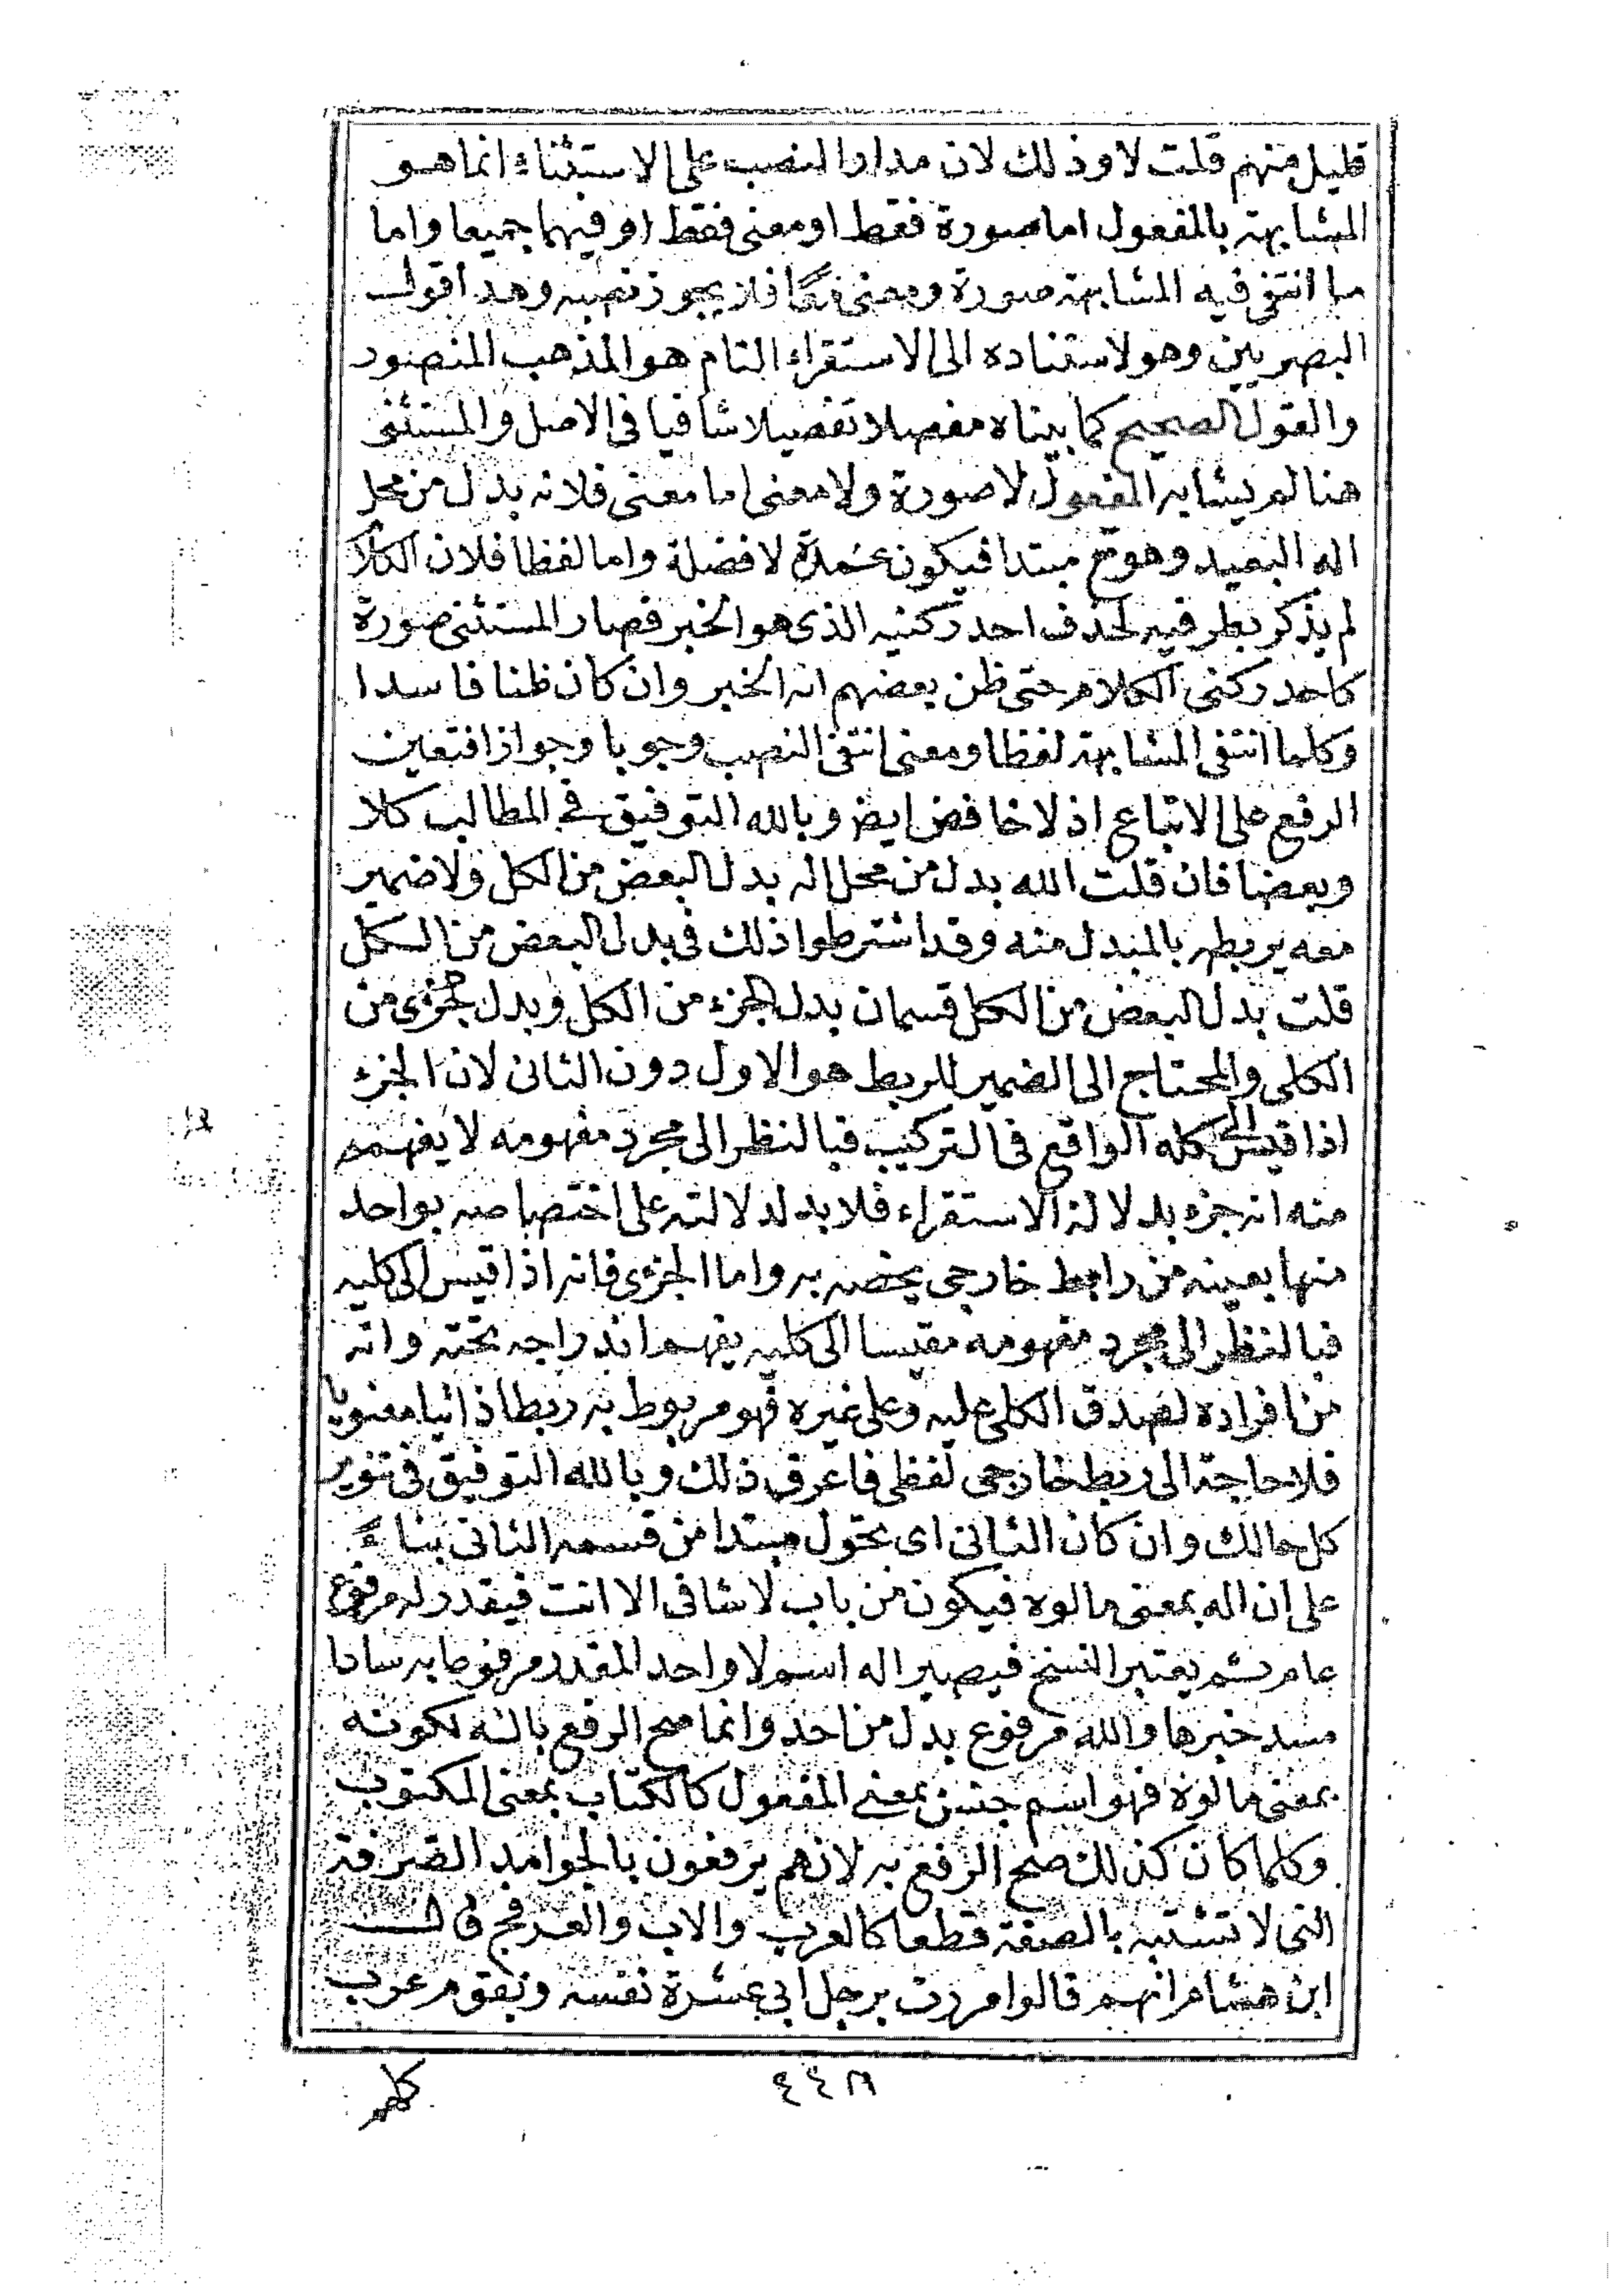 قليل منهم قلت لا وذلك لان مدار النصب على الاستثناء انما هو
المشابهة بالمفعول اما صورة فقط او معنى فقط او فيهما جميعا واما
ما انتفى فيه المشابهة صورة ومعنى فلا يجوز نصبه وهذا قول
البصريين وهو لاستناده الى الاستقراء التام هو المذهب المنصور
والقول الصحيح كما بيناه مفصلا تفصيلا شافيا فى الاصل والمستثنى
هنا لم يشابه المفعول لا صورة ولا معنى اما معنى فلانه بدل من محل
اله البعيد وهو مبتدا فيكون عمدة لا فضلة واما لفظا فلان الكلام
لم يذكر بطرفيه لحذف احد ركنيه الذى هو الخبر فصار المستثنى صورة
كاحد ركنى الكلام حتى ظن بعضهم انه الخبر وان كان ظنا فاسدا
وكلما انتفى المشابهة لفظا ومعنى انتفى النصب وجوبا وجوازا فتعين
الرفع على الاتباع اذ لا خافض ايض وبالله التوفيق فى المطالب كلا
وبعضا فان قلت الله بدل من محل اله بدل البعض من الكل ولا ضمير
معه يربطه بالمبدل منه وقد اشترطوا ذلك فى بدل البعض من الكل
قلت بدل البعض من الكل قسمان بدل الجزء من الكل وبدل جزئى من
الكلى والمحتاج الى الضمير للربط هو الاول دون الثانى لان الجزء
اذا قيس الى كله الواقع فى التركيب فبالنظر الى مجرد مفهومه لا يفهم
منه انه جزء بدلالة الاستقراء فلا بد لدلالته على اختصاصه بواحد
منها بعينه من رابط خارجى يخصه به واما الجزئى فانه اذا قيس الى كليه
فبالنظر الى مجرد مفهومه مقيسا الى كليه يفهم اندراجه تحته وانه
من افراده لصدق الكلى عليه وعلى غيره فهو مربوط به ربطا ذاتيا معنويا
فلا حاجة الى ربط خارجى لفظى فاعرف ذلك وبالله التوفيق فى تنوير
كل حالك وان كان الثانى اى تحول مبتدا من قسمه الثانى بناء
على ان اله بمعنى مالوه فيكون من باب لا شافى الا انت فيقدر له مرفوع
عام ثم يعتبر النسخ فيصير اله اسم لا واحد المقدر مرفوعا به سادا
مسد خبرها والله مرفوع بدل من احد وانما صح الرفع باله لكونه
بمعنى مالوه فهو اسم جنس بمعنى المفعول كالكتاب بمعنى المكتوب
وكلما كان كذلك صح الرفع به لانهم يرفعون بالجوامد الصرفة
التى لا تشتبه بالصفة قطعا كالعرب والاب والعرفج قال
ابن هشام انهم قالوا مررت برجل ابى عشرة نفسه وبقوم عرب
كلهم